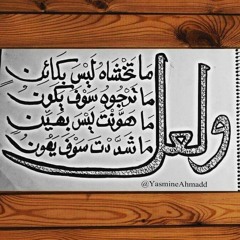 ولعل
ما تخشاه ليس بكائن
ما ترجوه سوف يكون
ما هونت ليس بهين
ما شددت سوف يهون
@YasmineAhmadd